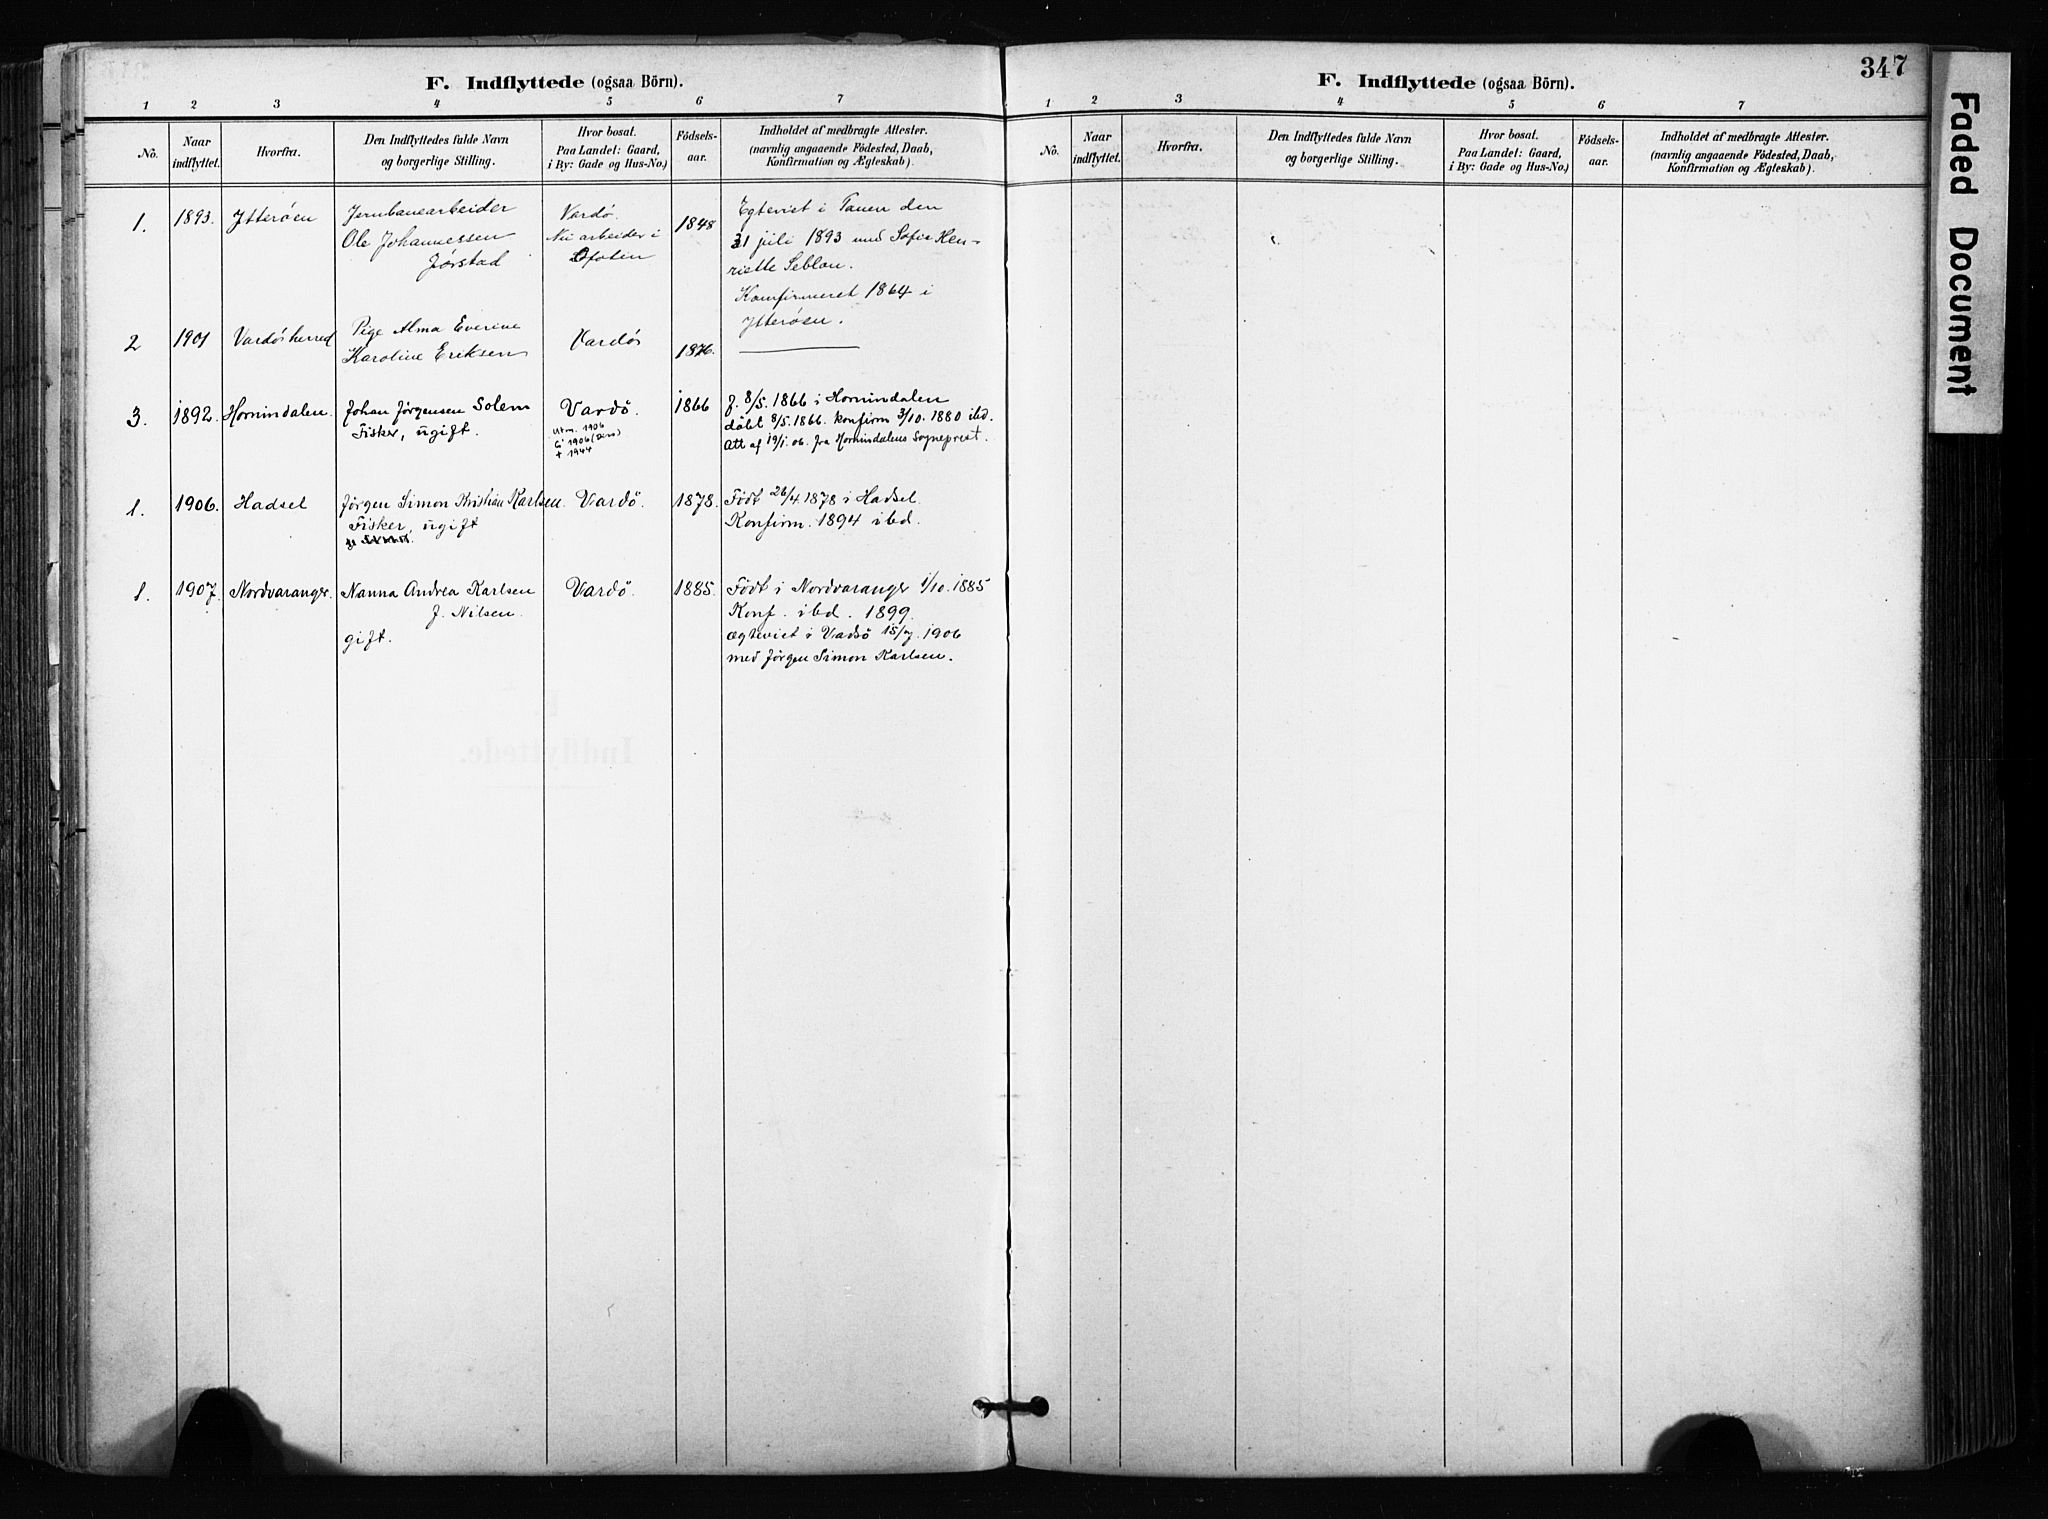 F. Indflyttede (ogsaa Börn).
1 2 3 4 5 6 7
No. Naar indflyttet. Hvorfra. Den Indflyttedes fulde Navn og borgerlige Stilling. Hvor bosat. Paa Landet: Gaard, i By: Gade og Hus-No.) Födsels-aar. Indholdet af medbragte Attester. (navnlig angaaende Födested, Daab, Konfirmation og Ægteskab).
1. 1893. Ytterøen Jernbanearbeider Vardø. 1848 Egteviet i Tanen den
Ole Johannessen Nu arbeider i 31 juli 1893 med Sofie Hen-
Jørstad Ofoten riette Seblon.
Konfirmeret 1864 i
Ytterøen.
2 1901 Vardø herred Pige Alma Everine Vardø 1876.
Karoline Eriksen
3. 1892. Hornindalen. Johan Jørgensen Solem Vardö. 1866 f. 8/5. 1866 i Hornindalen
Fisker, ugift. döbt 8/5. 1866. konfirm 3/10. 1880 ibd.
Utm. 1906 Att af 19/1. 06. fra Hornindalens Sogneprest.
G' 1906 (Diss)
+ 1944
1. 1906. Hadsel Jørgen Simon Kristian Karlsen. Vardö. 1878. Født 26/4. 1878 i Hadsel.
Fisker, ugift Konfirm. 1894 ibd.
1. 1907. Nordvaranger. Nanna Andrea Karlsen Vardö. 1885. Födt i Nordvaranger 1/10. 1885
f. Nilsen. Konf. ibd. 1899.
gift. ægteviet i Vadsö 1906
med Jørgen Simon Karlsen.
F. Indflyttede (ogsaa Börn).
347
1 2 3 4 5 6 7
No. Naar indflyttet. Hvorfra. Den Indflyttedes fulde Navn og borgerlige Stilling. Hvor bosat. Paa Landet: Gaard, i By: Gade og Hus-No.) Födsels-aar. Indholdet af medbragte Attester. (navnlig angaaende Födested, Daab, Konfirmation og Ægteskab).
Faded Document